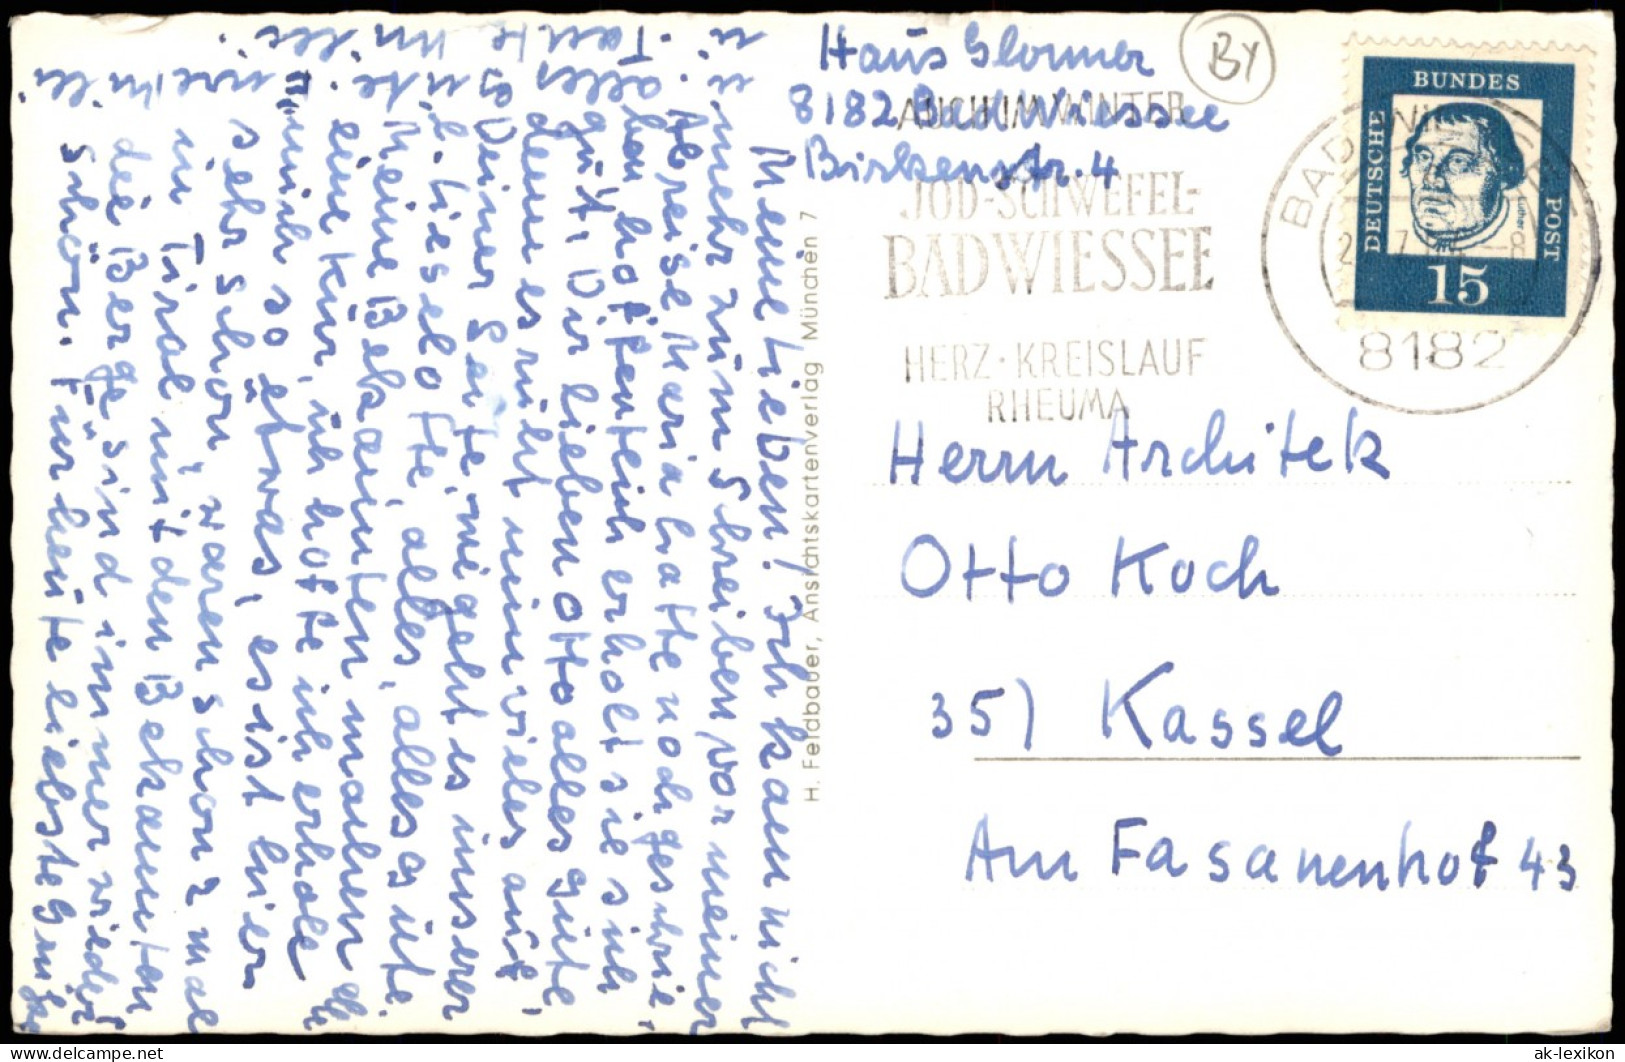 Haus Glonner
8182 Bad Wiessee
Birkenstr. 4
BY
AUCH IM WINTER
JOD-SCHWEFEL-
BAD WIESSEE
HERZ · KREISLAUF
RHEUMA
BAD WIESSEE
8182
DEUTSCHE
BUNDES
POST
Luther
15
Herrn Architek
Otto Koch
35) Kassel
Am Fasanenhof 43
H. Feldbauer, Ansichtskartenverlag München 7
Meine Lieben! Ich kam nicht
mehr zum Schreiben vor meiner
Abreise Maria hatte noch geschrie,
ben hoffentlich erholt sie sich
gut. Dir lieben Otto alles gute
denn es ruht nun vieles auf
Deiner Seite, wie geht es unserer
l. Liselotte, alles, alles gute.
Meine Bekannten machen
eine Kur, ich hoffe ich erhole
mich so etwas, es ist hier
sehr schön, waren schon 2 mal
in Tirol mit den Bekannten
die Berge sind immer wieder
schön. Für heute liebste Grüße
u. alles gute
u. Tante Milli.